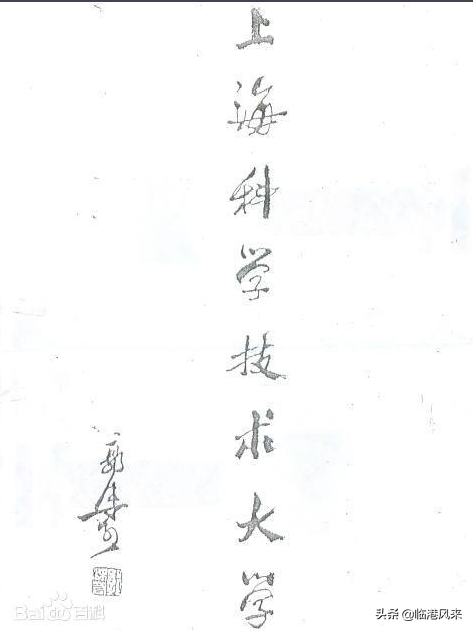 上海科学技术大学
Bai百科
头条 @临港风来